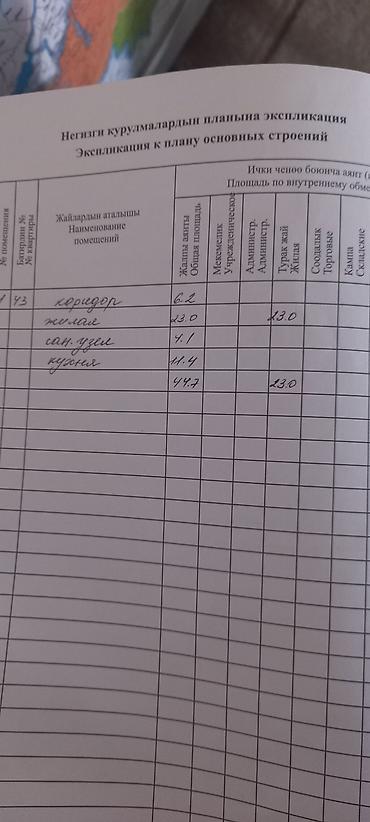 Негизги курулмалардын планына экспликация
Экспликация к плану основных строений
Ички ченөө боюнча аянт
Площадь по внутреннему обме
№ помещения
Батирдин №
№ квартиры
Жайлардын аталышы
Наименование
помещений
Жалпы аянты
Общая площадь
Мекемелик
Учрежденическое
Администр.
Администр.
Турак жай
Жилая
Соодалык
Торговые
Кампа
Складские
1 43 коридор 6.2
жилая 23.0 23.0
сан. узел 4.1
кухня 11.4
44.7 23.0